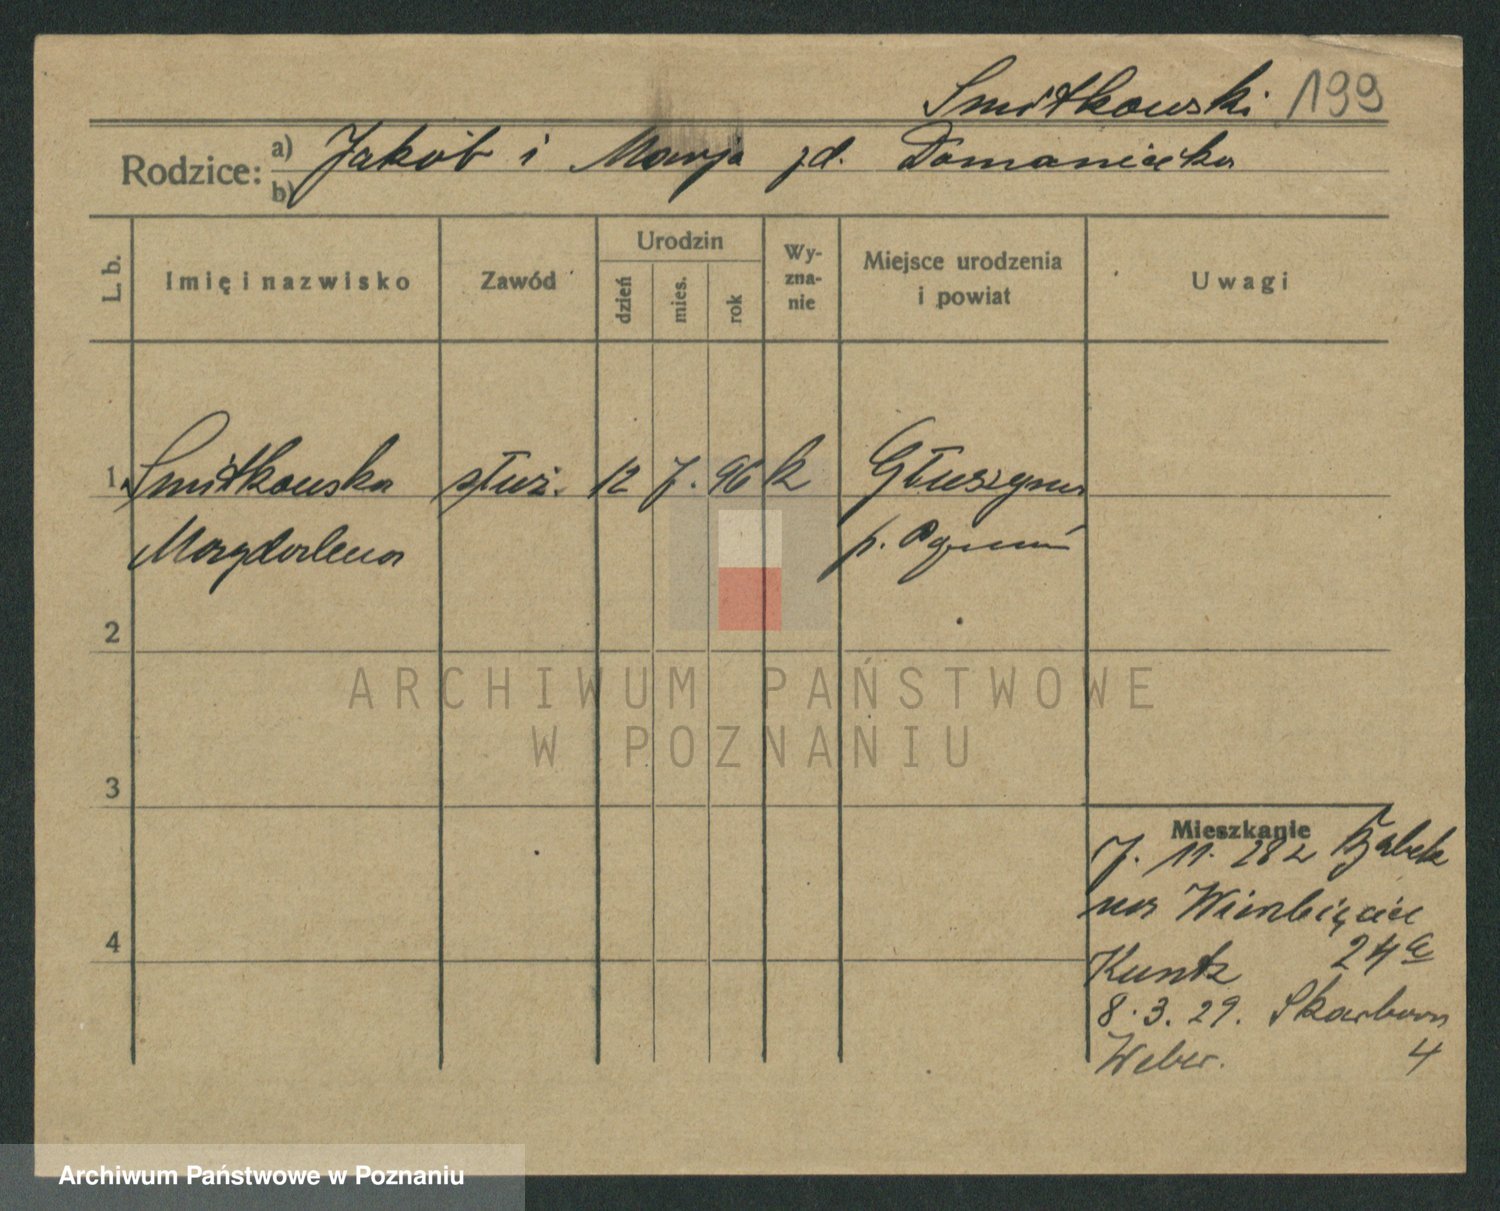 Smitkowski 199
Rodzice: a) Jakób i Marja zd. Domaniecka
b)
L. b.
Imię i nazwisko
Zawód
Urodzin
dzień
mies.
rok
Wy-
zna-
nie
Miejsce urodzenia
i powiat
Uwagi
1. Smitkowska służ. 12 7. 96 k Głuszyna
Magdalena p.
2
ARCHIWUM PAŃSTWOWE
W POZNANIU
3
Mieszkanie
7. 11. 28 z
na Wierzbięcice
Kuntz 24a
8. 3. 29. Skarbowa
Weber. 4
4
Archiwum Państwowe w Poznaniu